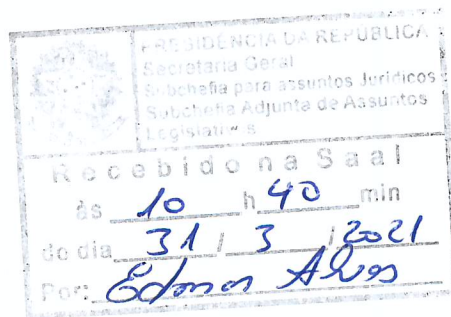 PRESIDÊNCIA DA REPÚBLICA
Secretaria Geral
Subchefia para assuntos Jurídicos
Subchefia Adjunta de Assuntos
Legislativos
Recebido na Saal
às 10 h 40 min
do dia 31 / 3 / 2021
Por: Edmar Alves